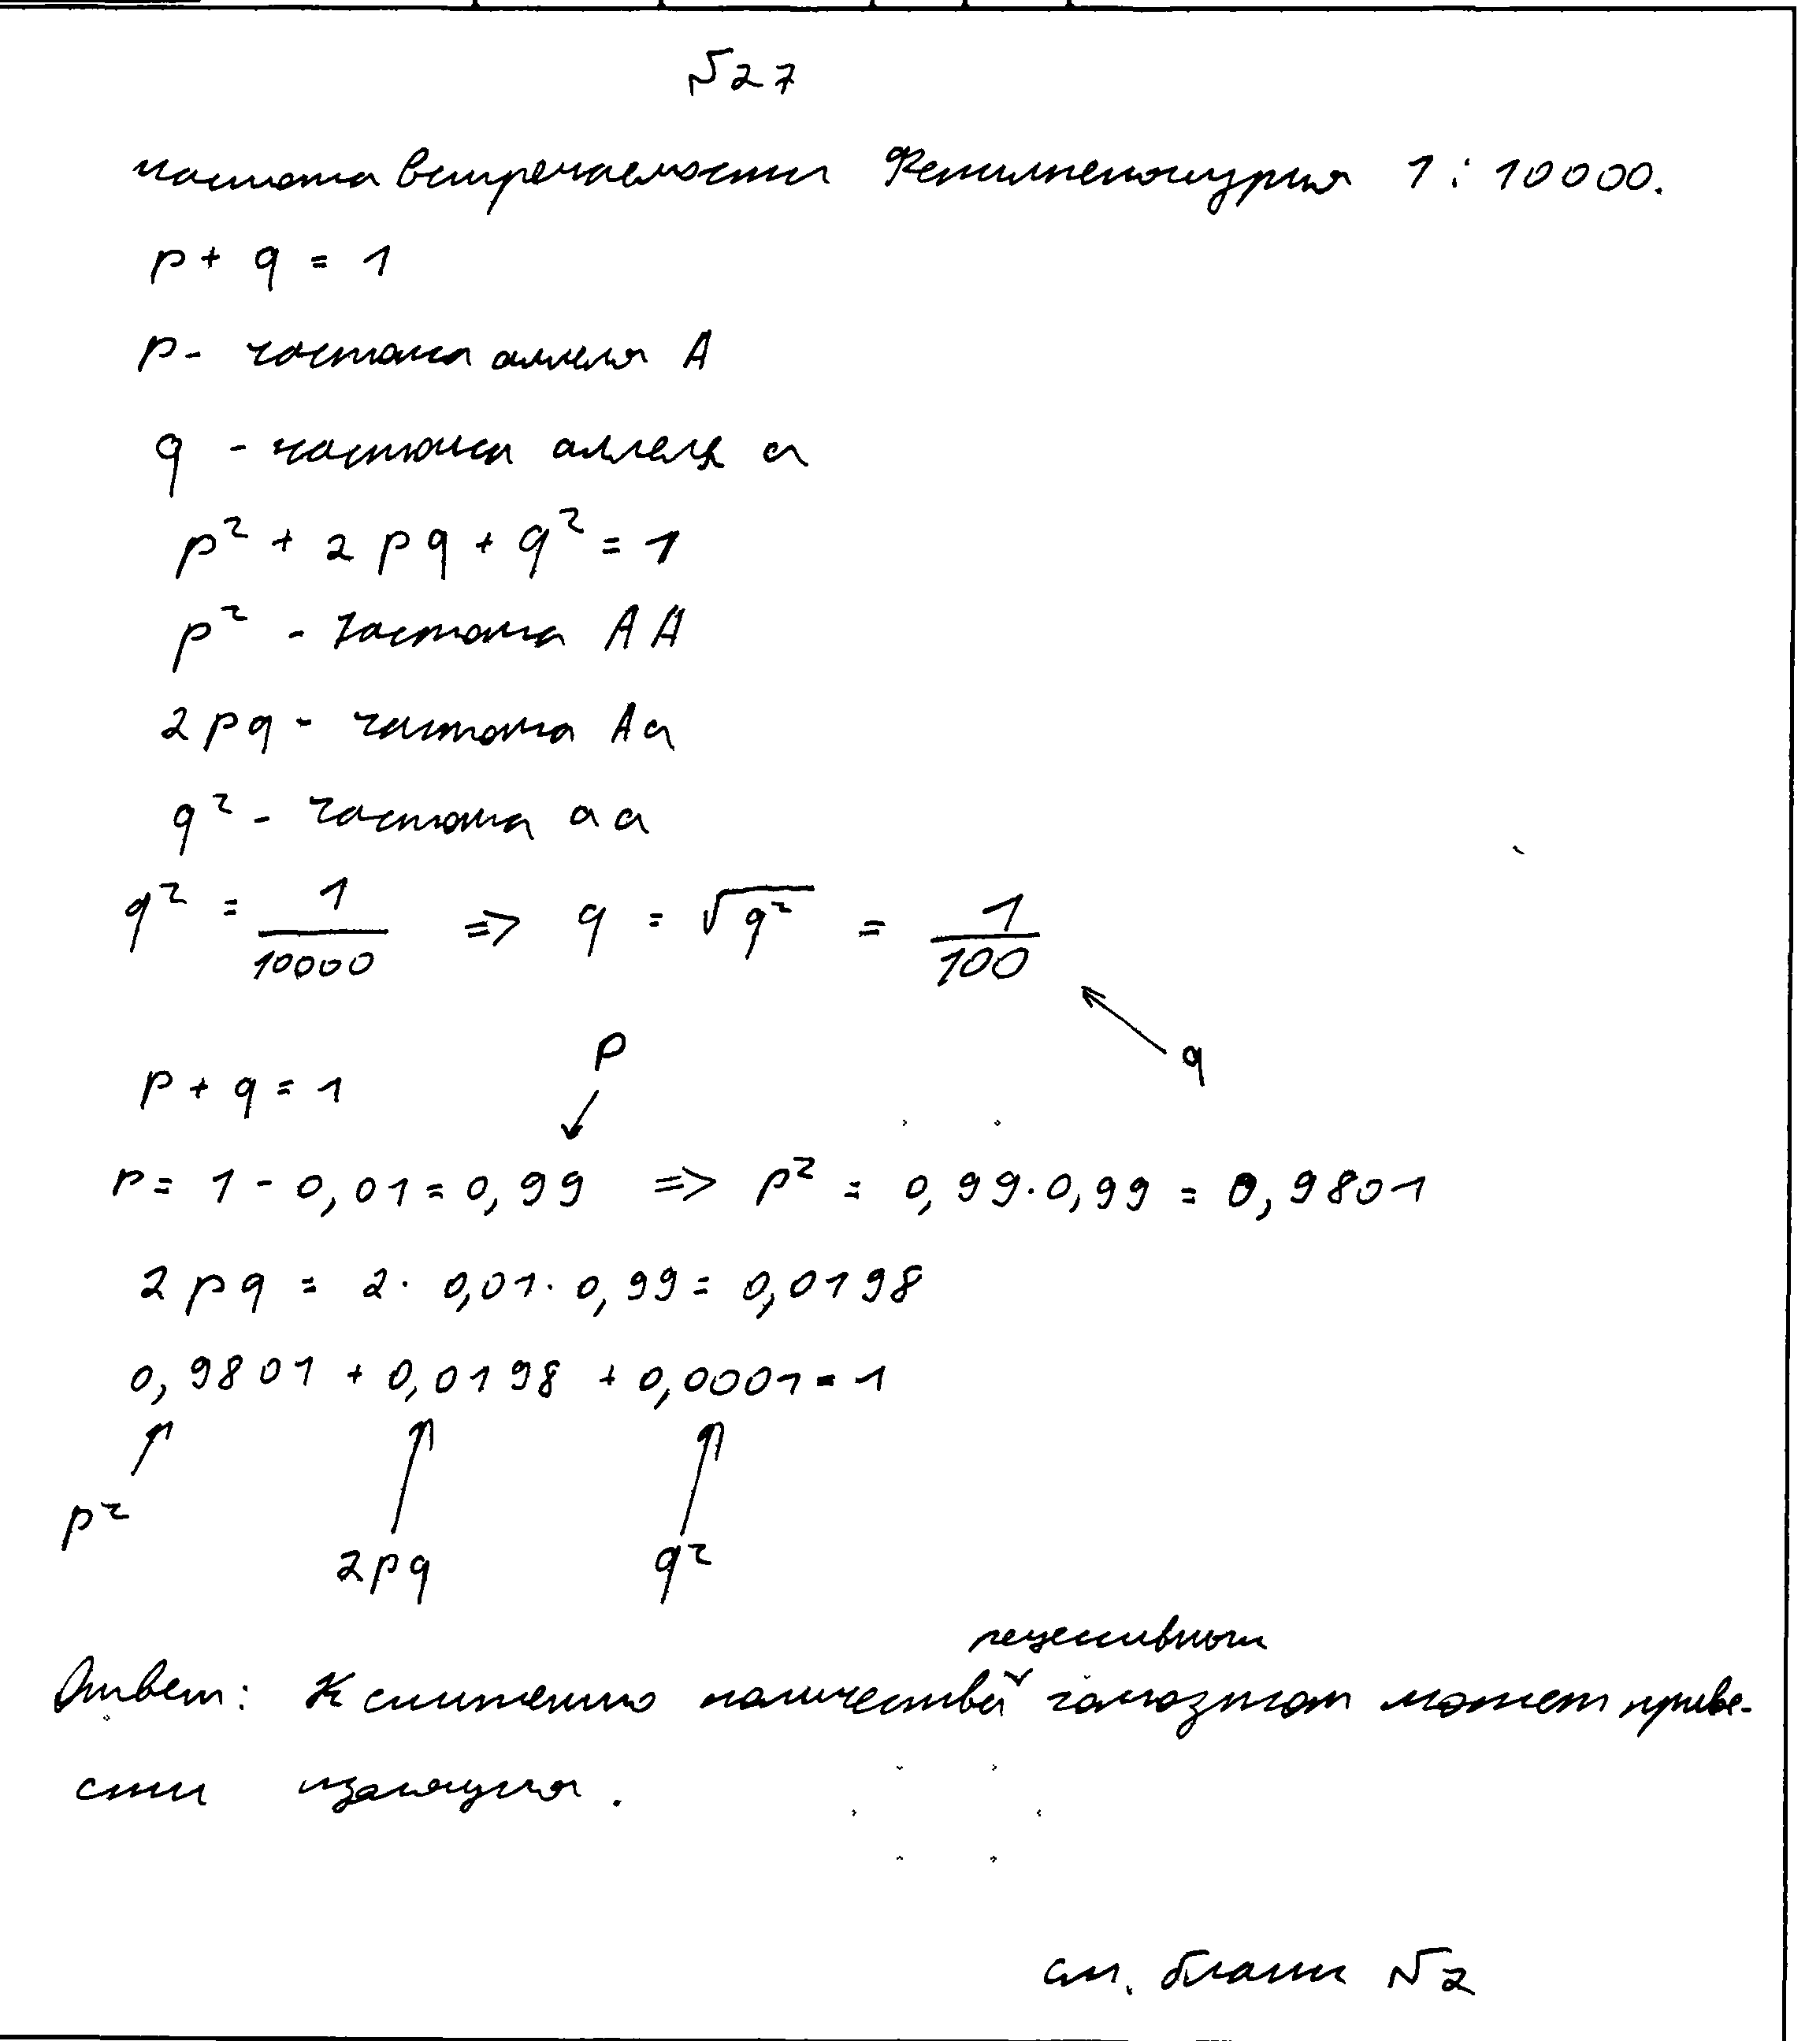 №27
частота встречаемости Фенилкетонурия 1 : 10000.
p + q = 1
p - частота аллеля A
q - частота аллеля a
p² + 2pq + q² = 1
p² - частота AA
2pq - частота Aa
q² - частота aa
q² = 1/10000 => q = √q² = 1/100
p
q
p + q = 1
p = 1 - 0,01 = 0,99 => p² = 0,99·0,99 = 0,9801
2pq = 2· 0,01· 0,99 = 0,0198
0,9801 + 0,0198 + 0,0001 = 1
p²
2pq
q²
рецессивных
Ответ: К снижению количества гомозигот может приве-
сти изоляция.
см. бланк №2